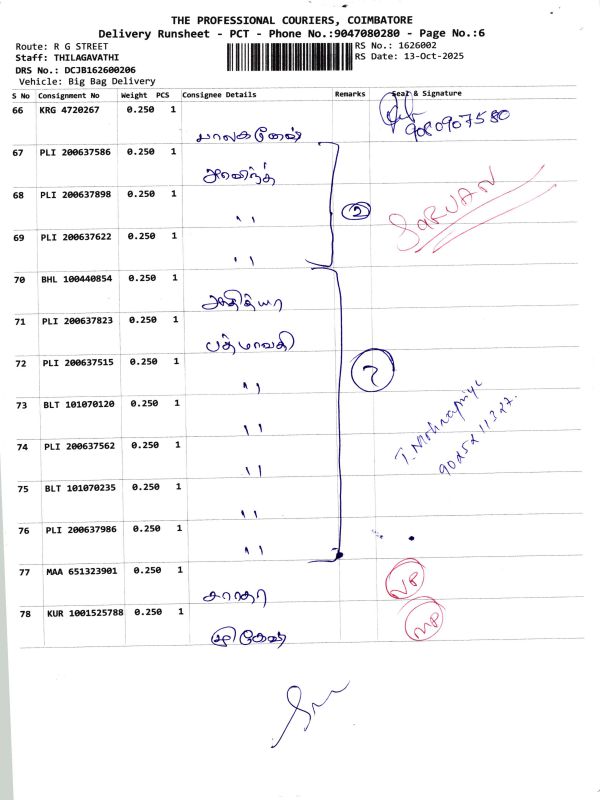 THE PROFESSIONAL COURIERS, COIMBATORE
Delivery Runsheet - PCT - Phone No.:9047080280 - Page No.:6
Route: R G STREET
RS No.: 1626002
Staff: THILAGAVATHI
RS Date: 13-Oct-2025
DRS No.: DCJB162600206
Vehicle: Big Bag Delivery
S No Consignment No Weight PCS Consignee Details Remarks Seal & Signature
66 KRG 4720267 0.250 1
9080907580
67 PLI 200637586 0.250 1
அரவிந்த்
68 PLI 200637898 0.250 1
" 3 SARVAN
69 PLI 200637622 0.250 1
"
70 BHL 100440854 0.250 1
ஆதித்யா
71 PLI 200637823 0.250 1
பத்மாவதி
72 PLI 200637515 0.250 1
" 7
73 BLT 101070120 0.250 1
"
74 PLI 200637562 0.250 1
"
75 BLT 101070235 0.250 1
"
76 PLI 200637986 0.250 1
"
77 MAA 651323901 0.250 1
சாரதா
78 KUR 1001525788 0.250 1